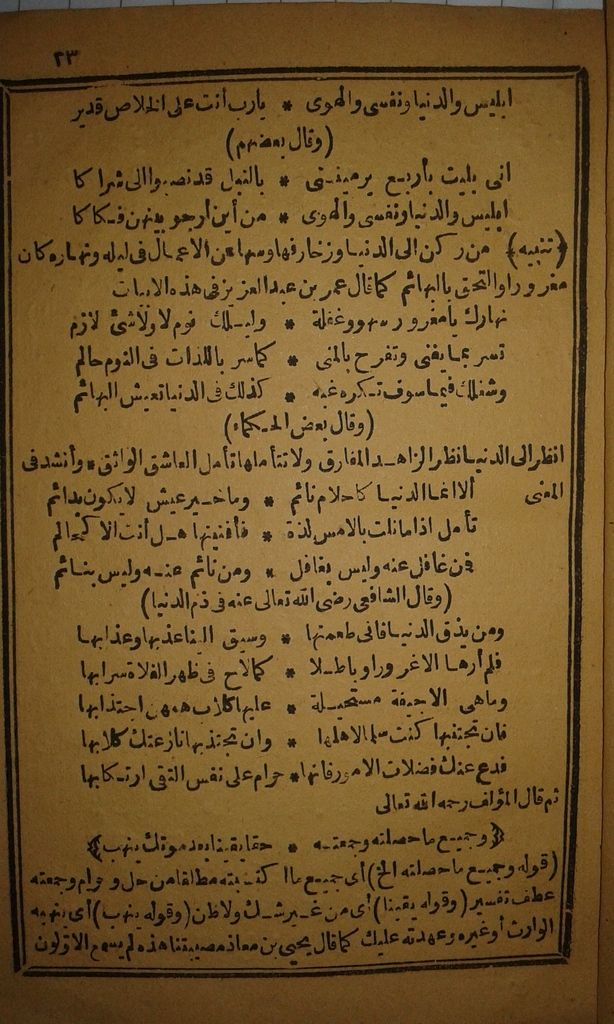 ٢٣
ابليس والدنيا ونفسي والهوى * يارب أنت على الخلاص قدير
(وقال بعضهم)
انى بليت بأربع يرميننى * بالنبل قد نصبوا الى شراكا
ابليس والدنيا ونفسى والهوى * من أين أرجو بينهن فكاكا
﴿تنبيه﴾ من ركن الى الدنيا وزخارفها وسها عن الاعمال فى ليله ونهاره كان
مغرورا والتحق بالبهائم كما قال عمر بن عبد العزيز فى هذه الابيات
نهارك يا مغرور سهو وغفلة * وليلك نوم لا ولا شئ لازم
تسر بما يفنى وتفرح بالمنى * كما سر باللذات فى النوم حالم
وشغلك فيما سوف تكره غبه * كذلك فى الدنيا تعيش البهائم
(وقال بعض الحكماء)
انظر الى الدنيا نظر الزاهد المفارق ولا تتأملها تأمل العاشق الوامق * وأنشد فى
المعنى ألا انما الدنيا كأحلام نائم * وما خير عيش لا يكون بدائم
تأمل اذا ما نلت بالامس لذة * فأفنيتها هل أنت الا كحالم
فمن غافل عنه وليس بغافل * ومن نائم عنه وليس بنائم
(وقال الشافعى رضى الله تعالى عنه فى ذم الدنيا)
ومن يذق الدنيا فانى طعمتها * وسيق الينا عذبها وعذابها
فلم أرها الا غرورا وباطلا * كما لاح فى ظهر الفلاة سرابها
وما هى الا جيفة مستحيلة * عليها كلاب همهن اجتذابها
فان تجتنبها كنت سلما لاهلها * وان تجتذبها نازعتك كلابها
فدع عنك فضلات الامور فانها * حرام على نفس التقى ارتكابها
ثم قال المؤلف رحمه الله تعالى
﴿وجميع ما حصلته وجمعته * حقا يقينا بعد موتك ينهب﴾
(قوله وجميع ما حصلته الخ) أى جميع ما اكتسبته مطلقا من حل وحرام وجمعته
عطف تفسير (وقوله يقينا) أى من غير شك ولا ظن (وقوله ينهب) أى ينهبه
الوارث أو غيره وعهدته عليك كما قال يحيى بن معاذ مصيبتنا هذه لم يسمع الاولون